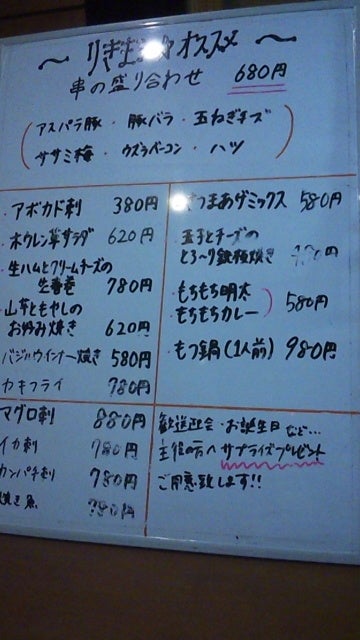 〜 りきまる オススメ 〜
串の盛り合わせ 680円
アスパラ豚・豚バラ・玉ねぎチーズ
ササミ梅・ウズラベーコン・ハツ
・アボカド刺 380円
・ホウレン草サラダ 620円
・生ハムとクリームチーズの
生春巻 780円
・山芋ともやしの
お好み焼き 620円
バジルウインナー焼き 580円
カキフライ 780円
マグロ刺 880円
イカ刺 780円
カンパチ刺 780円
焼き魚 780円
さつまあげミックス 580円
・玉子とチーズの
とろ〜り鉄板焼き
・もちもち明太
・もちもちカレー 580円
・もつ鍋(1人前) 980円
歓送迎会・お誕生日 など…
主役の方へ サプライズプレゼント
ご用意致します!!